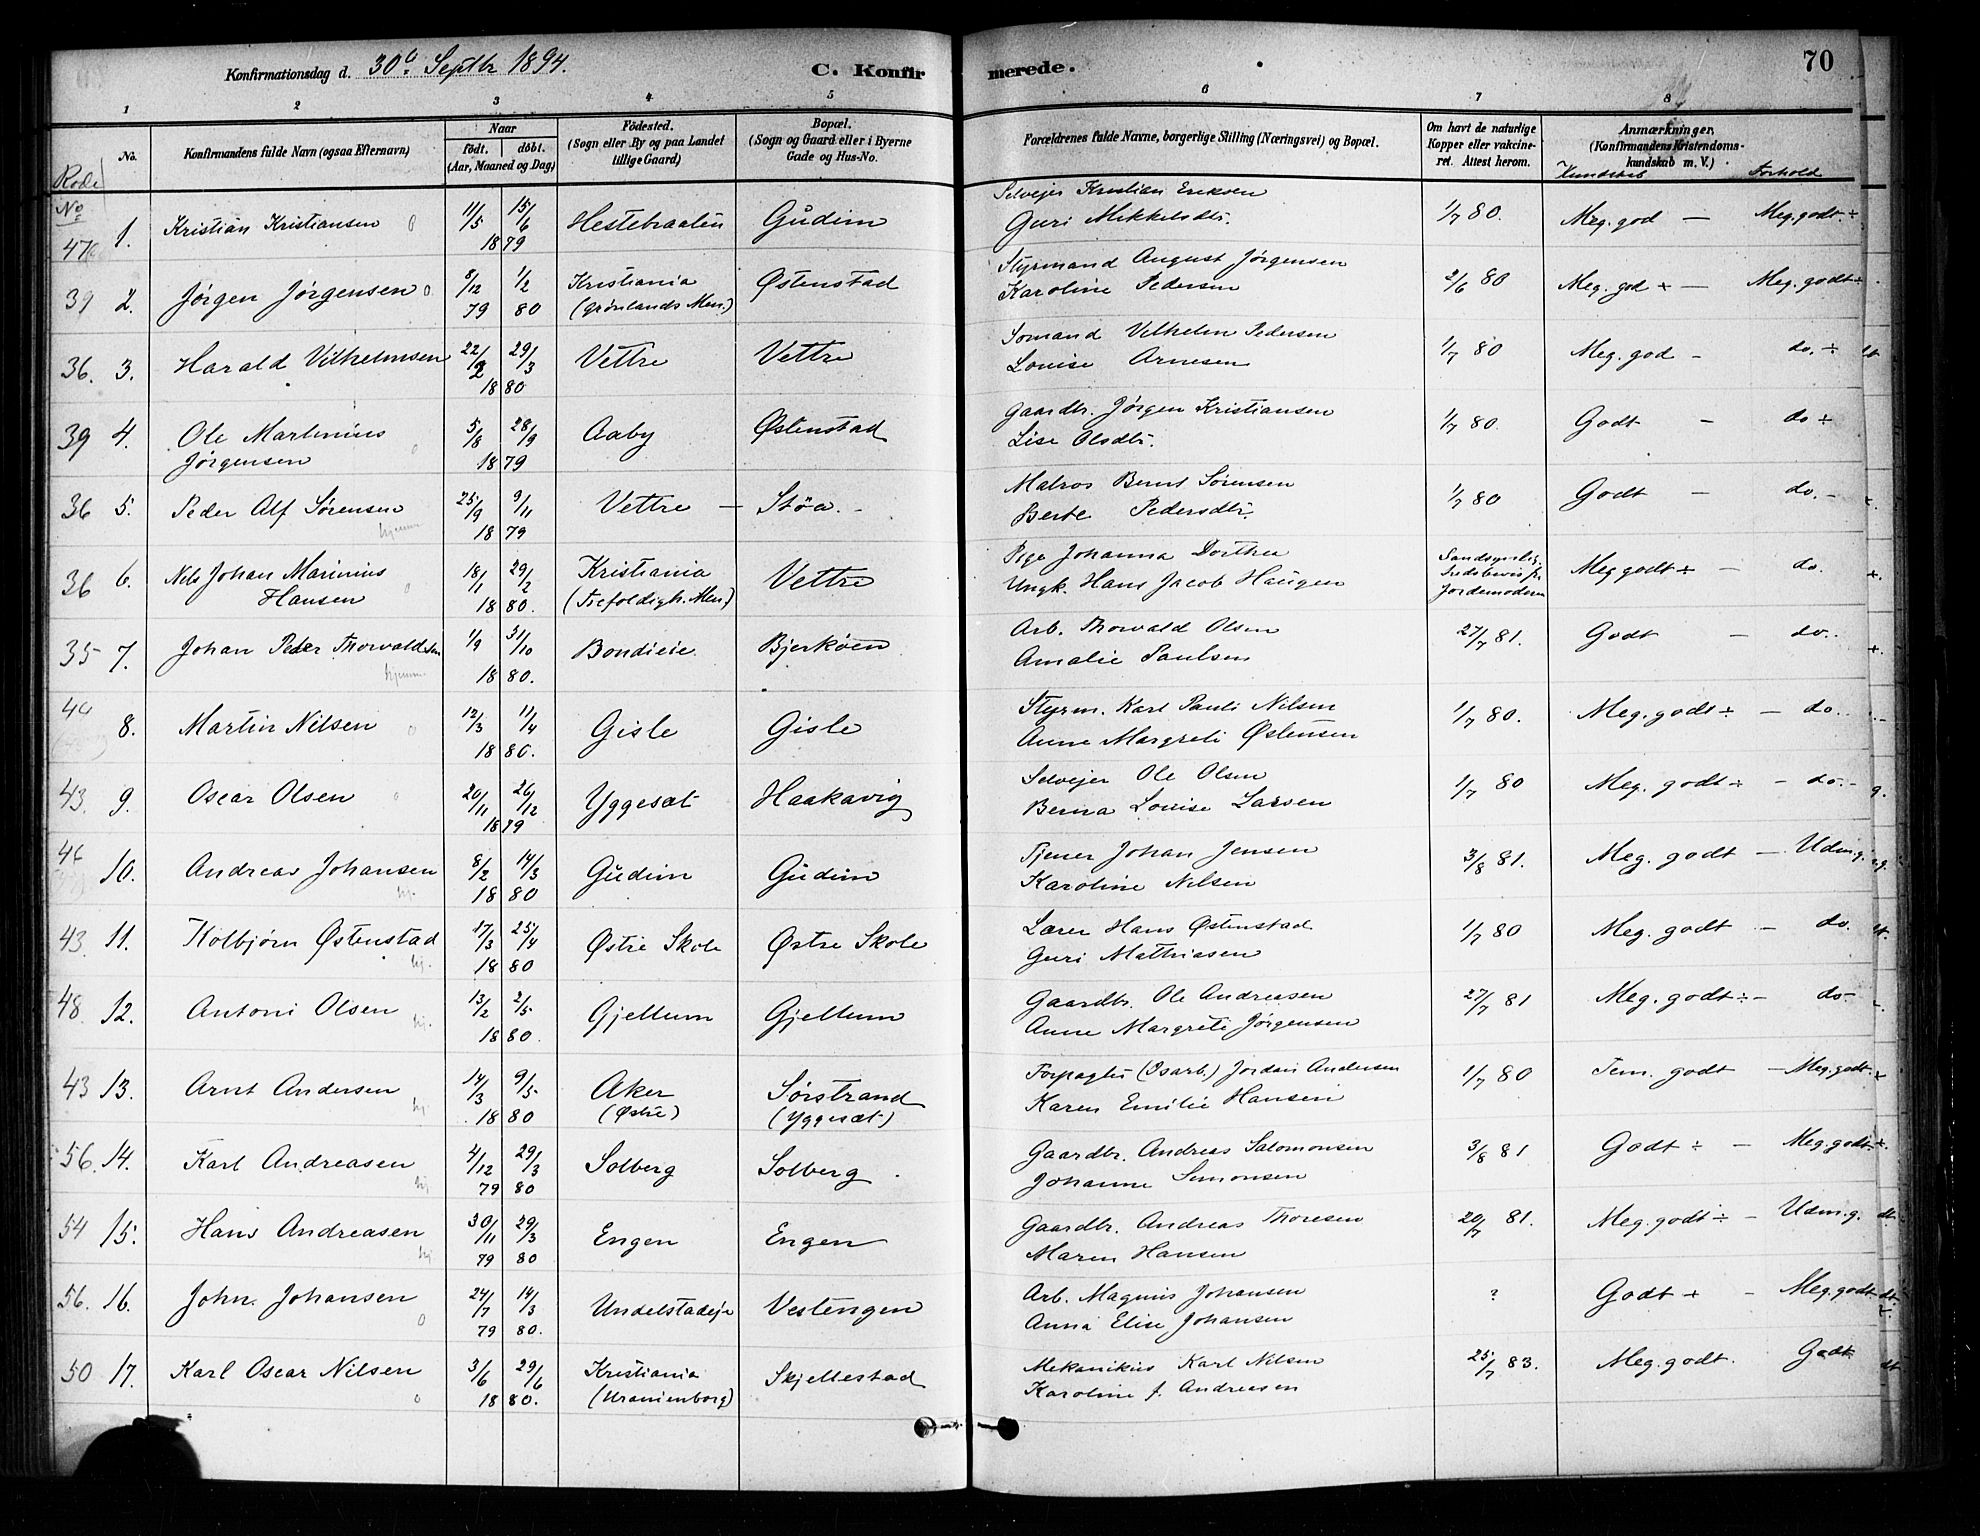 Konfirmationsdag d. 30te Septbr 1894.
C. Konfirmerede.
70
1 2 3 4 5 6 7 8
Rode No
No.
Konfirmandens fulde Navn (ogsaa Efternavn)
Naar
födt. döbt.
(Aar, Maaned og Dag)
Födested.
(Sogn eller By og paa Landet
tillige Gaard)
Bopæl.
(Sogn og Gaard eller i Byerne
Gade og Hus-No.
Forældrenes fulde Navne, borgerlige Stilling (Næringsvei) og Bopæl.
Om havt de naturlige
Kopper eller vakcine-
ret. Attest herom.
Anmærkninger.
(Konfirmandens Kristendoms-
kundskab m. V.)
Kundskab Forhold
47 1. Kristian Kristiansen 11/5 15/6 1879 Hestebraaten Gudim
Selvejer Kristian Eriksen
Guri Mikkelsdtr. 1/7 80. Meg. god — Meg. godt. ÷
39 2. Jørgen Jørgensen 8/12 79 1/2 80 Kristiania
(Grønlands Men.) Østenstad
Styrmand August Jørgensen
Karoline Pedersen 2/6 80 Meg. god + — Meg. godt ÷
36. 3. Harald Vilhelmsen 22/2 29/3 1880 Vettre Vettre
Sømand Vilhelm Pedersen
Louise Arnesen 1/7 80 Meg. god - do. ÷
39 4. Ole Martinius
Jørgensen 5/8 28/9 1879 Aaby Østenstad
Gaardbr. Jørgen Kristiansen
Lise Olsdtr. 1/7 80. Godt - do ÷
36 5. Peder Alf Sørensen 25/9 9/11 1879 Vettre — Støa. -
hjemme
Matros Bernt Sørensen
Berte Pedersdtr. 1/7 80 Godt — do. -
36 6. Nils Johan Marinius
Hansen 18/1 29/2 1880. Kristiania
(Trefoldigh. Men.) Vettre
Pige Johanna Dorthea
Ungk. Hans Jacob Haugen
Jordemoderen Meg godt ÷ — do.
35 7. Johan Peder Thorvaldsen 1/9 31/10 1880. Bondieie Bjerkøen
hjemme
Arb. Thorvald Olsen
Amalie Paulsen 27/7 81. Godt — do..
8. Martin Nilsen 12/3 11/4 1880. Gisle Gisle
Styrm. Karl Pauli Nilsen
Anne Margrete Østensen 1/7 80. Meg. godt ÷ — do..
43. 9. Oscar Olsen 20/11 26/12 1879 Yggesæt Haakavig
Selvejer Ole Olsen
Berna Louise Larsen 1/7 80 Meg. godt ÷ - do. -
46 10. Andreas Johansen 8/2 14/3 1880 Gudim Gudim
hj.
Tjener Johan Jensen
Karoline Nilsen 3/8 81. Meg. godt — Udm.g.
43. 11. Kolbjørn Østenstad 17/3 25/4 1880 Østre Skole Østre Skole
hj.
Lærer Hans Østenstad
Guri Mathiasen 1/7 80 Meg. godt - do.
48. 12. Antoni Olsen 13/2 2/5 1880. Gjellum Gjellum
hj.
Gaardbr. Ole Andreasen
Anne Margrete Jørgensen 27/7 81 Meg. godt ÷ - do -
43 13. Arnt Andersen 14/3 9/5 1880 Aker
(Østre) Sørstrand
(Yggesæt)
hj.
Forpagter (Isarb.) Jordan Andersen
Karen Emilie Hansen 1/7 80 Tem. godt - Meg. godt.
56. 14. Karl Andreasen 4/12 79 29/3 80 Solberg Solberg
hj.
Gaardbr. Andreas Salomonsen
Johanne Simonsen 3/8 81 Godt ÷ - Meg. godt.
54 15. Hans Andreasen 30/11 79 29/3 80 Engen Engen
hj
Gaardbr. Andreas Thoresen
Maren Hansen 20/7 81. Meg. godt ÷ - Udm.g.
56. 16. John. Johansen 24/7 79 14/3 80. Undelstadeje Vestengen
Arb. Magnus Johansen
Anna Elise Johansen ? Godt + - Meg. godt
50 17. Karl Oscar Nilsen 3/6 29/6 1880. Kristiania
(Uranienborg) Skjellestad
Mekanikus Karl Nilsen
Karoline f. Andreasen 25/7 83. Meg. godt. Godt